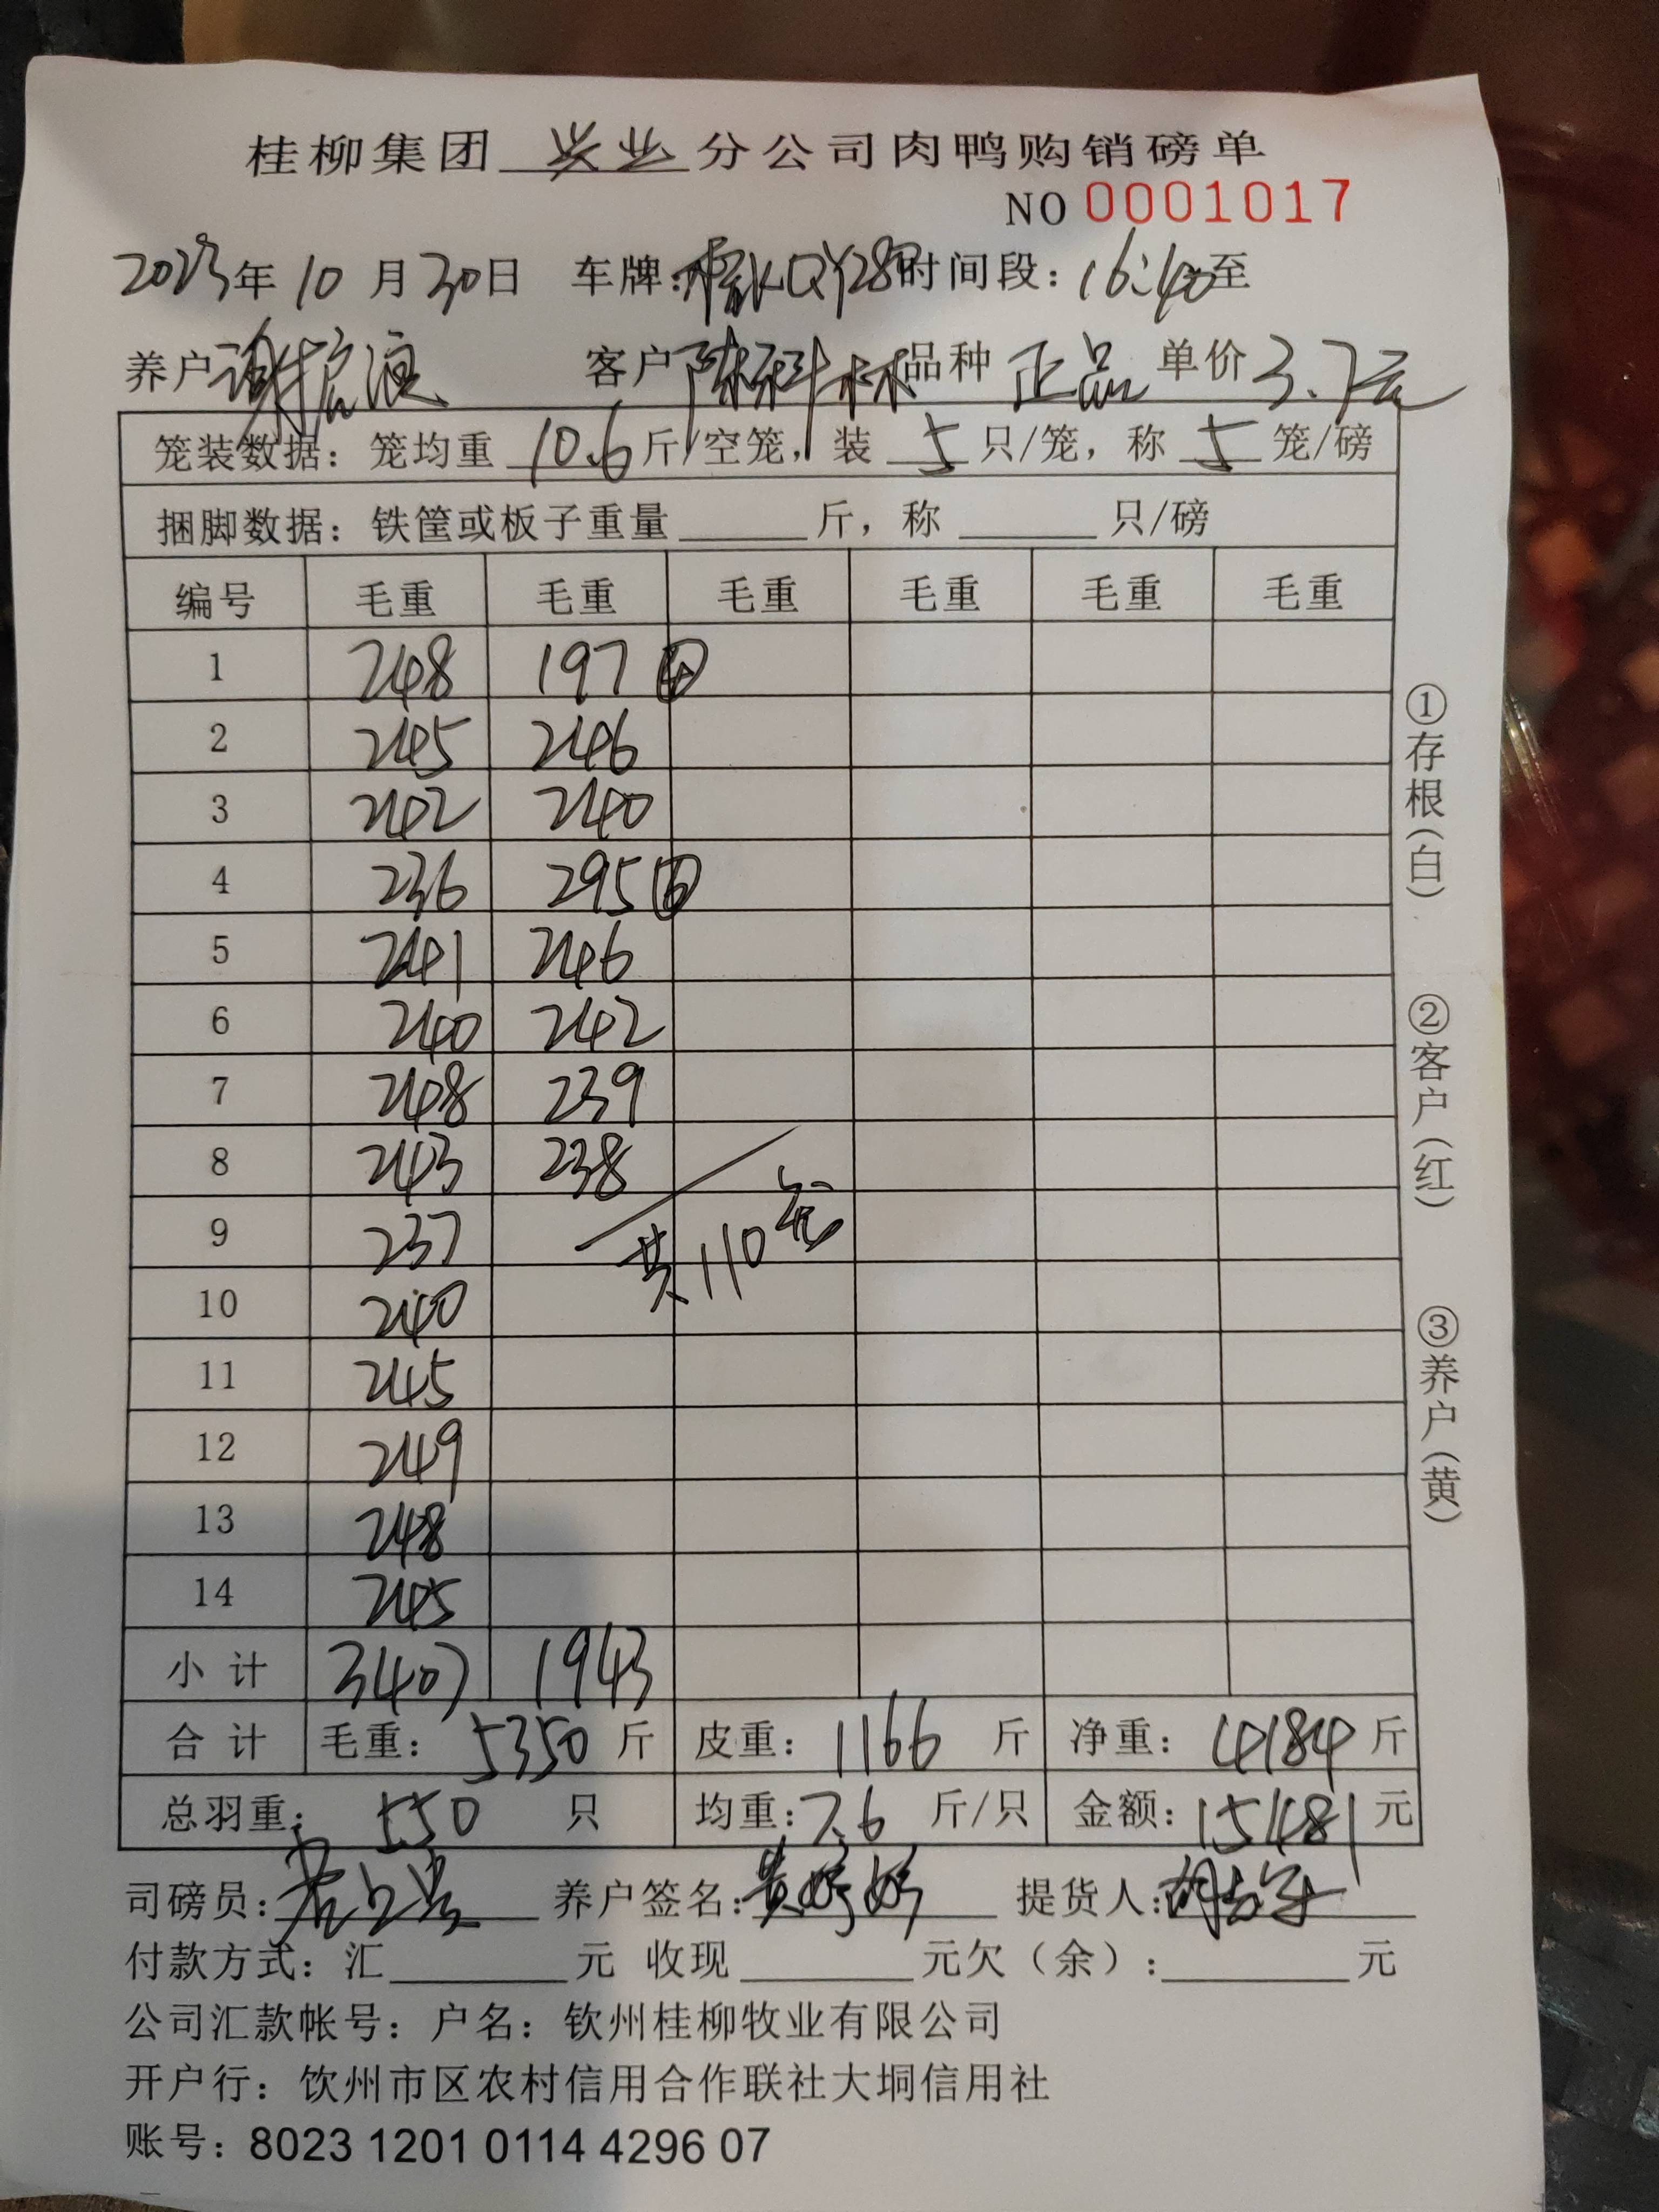 桂柳集团 兴业 分公司肉鸭购销磅单
NO 0001017
2023年 10 月 30日 车牌: 桂KQY28 时间段: 16:40至
养户 谢 客户 陈科林 品种 正品 单价 3.7元
笼装数据: 笼均重 10.6 斤/空笼, 装 5 只/笼, 称 5 笼/磅
捆脚数据: 铁筐或板子重量 斤, 称 只/磅
编号 毛重 毛重 毛重 毛重 毛重 毛重
1 248 197 ④
2 245 246
3 242 240
4 236 295 ⑥
5 241 246
6 240 242
7 248 239
8 243 238
9 237 共110笼
10 240
11 245
12 249
13 248
14 245
小 计 3407 1943
合 计 毛重: 5350 斤 皮重: 1166 斤 净重: 4184 斤
总羽重: 550 只 均重: 7.6 斤/只 金额: 15481 元
司磅员: 养户签名: 黄婷婷 提货人:
付款方式: 汇 元 收现 元欠(余): 元
公司汇款帐号: 户名: 钦州桂柳牧业有限公司
开户行: 饮州市区农村信用合作联社大垌信用社
账号: 8023 1201 0114 4296 07
①存根(白)
②客户(红)
③养户(黄)